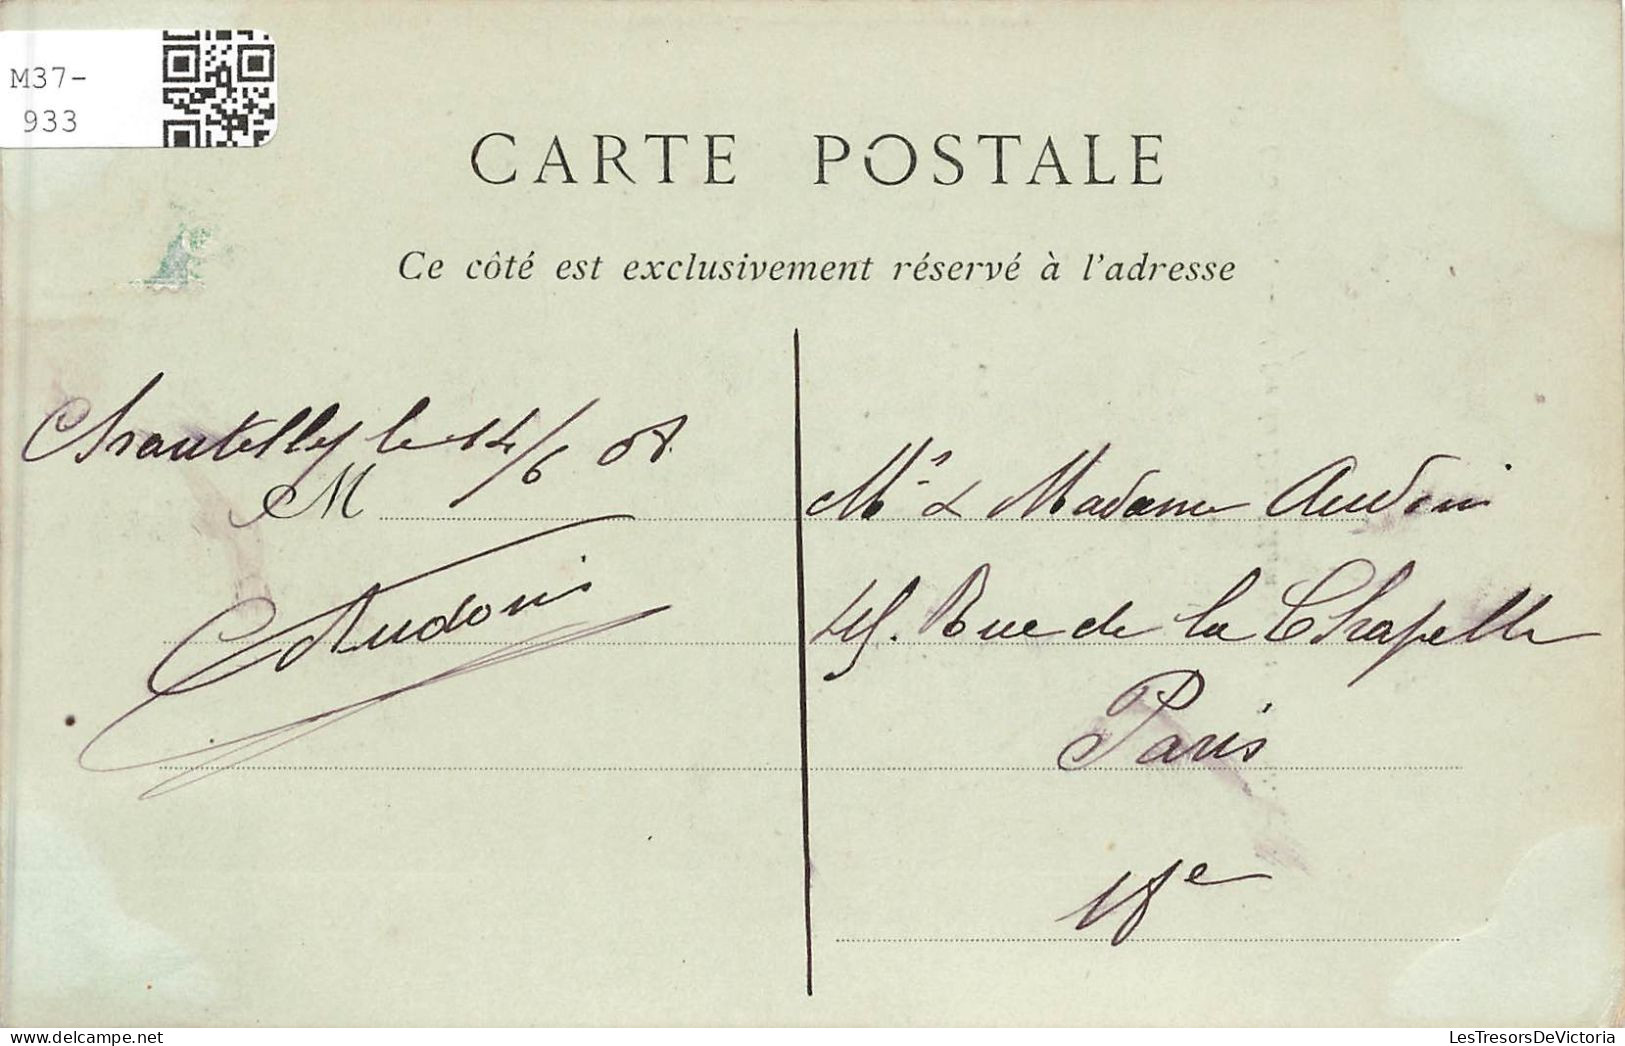 M37-
933
CARTE POSTALE
Ce côté est exclusivement réservé à l'adresse
Chantilly le 14/6 08
M
Audoin
Mr & Madame Audoin
45. Rue de la Chapelle
Paris
18e
LesTresorsDeVictoria
delcampe.net